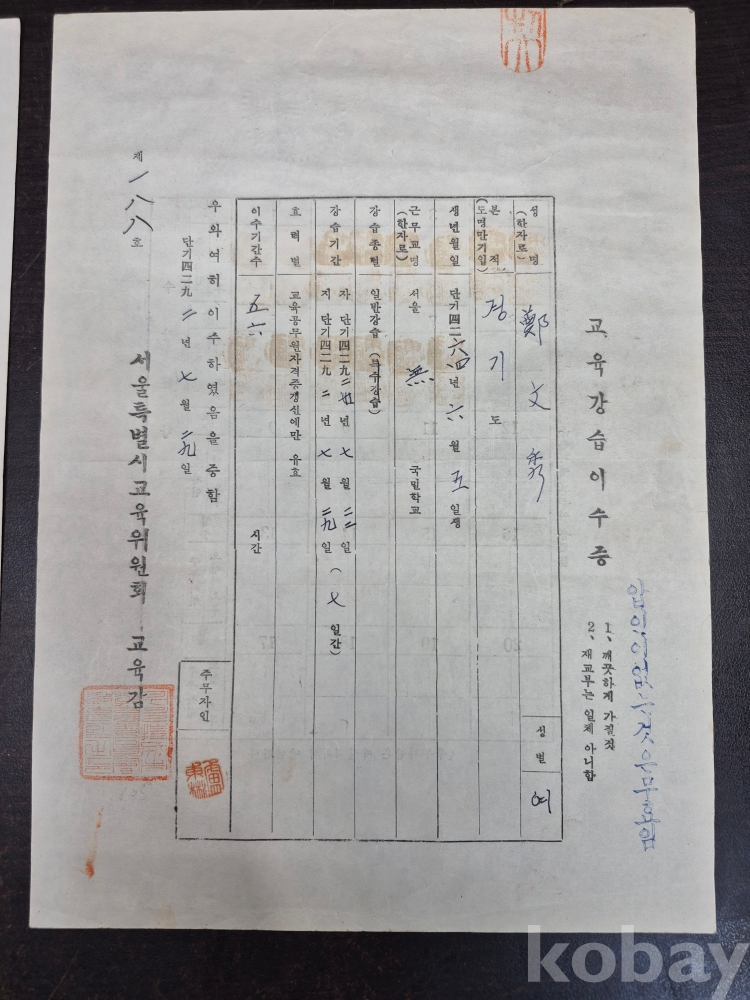 교육강습이수증
1、깨끗하게 가질것
2、재교부는 일체 아니함
성명 (한자로) 鄭文秀
성별 여
본적 (도명만기입) 경기도
생년월일 단기四二六四年 六월 五일생
근무교명 (한자로) 서울 無 국민학교
강습종별 일반강습 (특수강습)
강습기간 자 단기四二九二年 七월 二三일
지 단기四二九二년 七월 二九일 (七일간)
효력별 교육공무원자격증갱신에만 유효
이수기간수 五六 시간
주무자인
우와여히 이수하였음을 증함
단기四二九二년 七월 二九일
제一八八호
서울특별시교육위원회 교육감
kobay